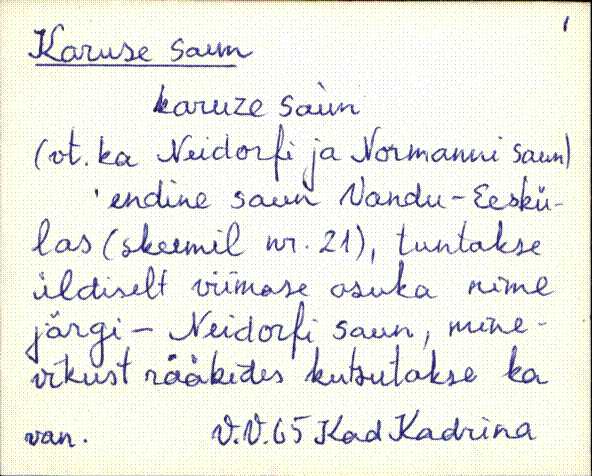 1
Karuse saun
karuze saùn
(vt. ka Neidorfi ja Normanni saun)
'endine saun Vandu-Eeskü-
las (skeemil nr. 21), tuntakse
üldiselt viimase asuka nime
järgi - Neidorfi saun, mine-
vikust rääkides kutsutakse ka
van. V.V. 65 Kad Kadrina